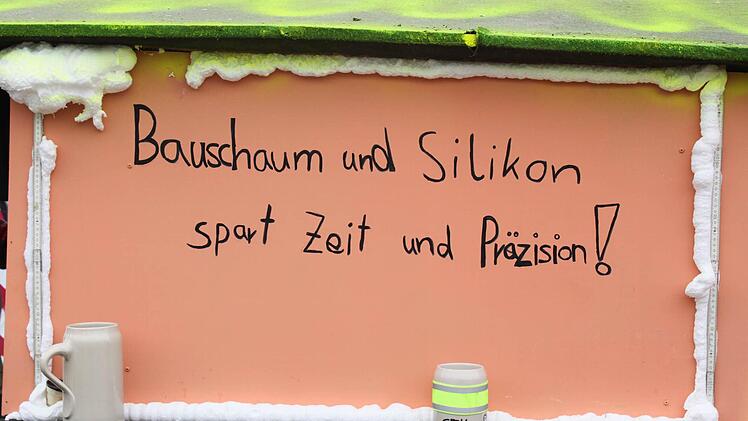 Bauschaum und Silikon
spart Zeit und Präzision!